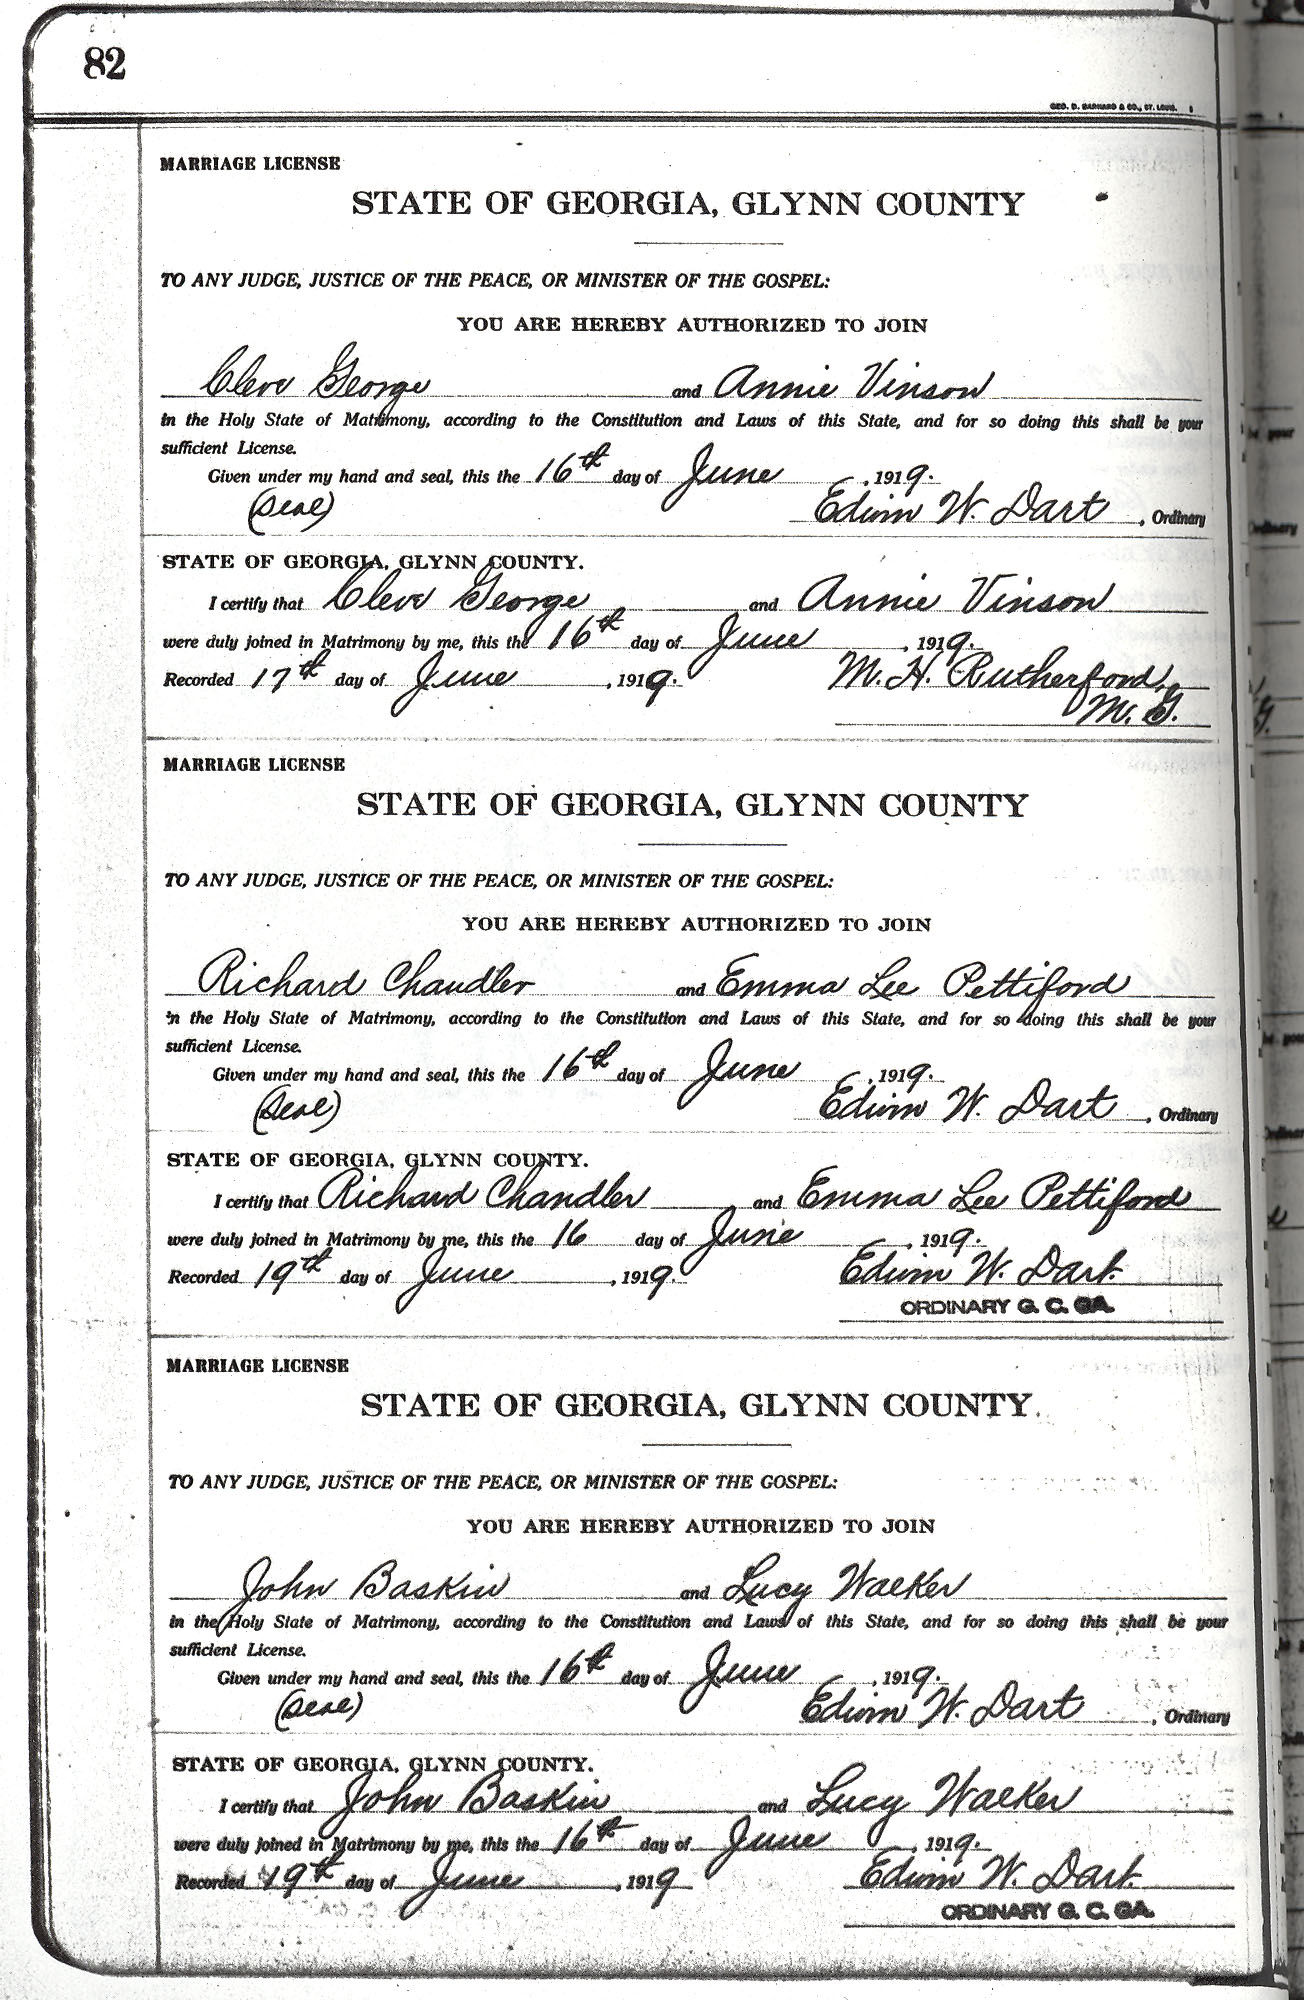 82
GEO. D. BARNARD & CO., ST. LOUIS.
MARRIAGE LICENSE
STATE OF GEORGIA, GLYNN COUNTY
TO ANY JUDGE, JUSTICE OF THE PEACE, OR MINISTER OF THE GOSPEL:
YOU ARE HEREBY AUTHORIZED TO JOIN
Cleve George and Annie Vinson
in the Holy State of Matrimony, according to the Constitution and Laws of this State, and for so doing this shall be your
sufficient License.
Given under my hand and seal, this the 16th day of June, 1919.
(Seal) Edwin W. Dart, Ordinary
STATE OF GEORGIA, GLYNN COUNTY.
I certify that Cleve George and Annie Vinson
were duly joined in Matrimony by me, this the 16th day of June, 1919.
Recorded 17th day of June, 1919. M. H. Rutherford,
M. G.
MARRIAGE LICENSE
STATE OF GEORGIA, GLYNN COUNTY
TO ANY JUDGE, JUSTICE OF THE PEACE, OR MINISTER OF THE GOSPEL:
YOU ARE HEREBY AUTHORIZED TO JOIN
Richard Chandler and Emma Lee Pettiford
in the Holy State of Matrimony, according to the Constitution and Laws of this State, and for so doing this shall be your
sufficient License.
Given under my hand and seal, this the 16th day of June, 1919.
(Seal) Edwin W. Dart, Ordinary
STATE OF GEORGIA, GLYNN COUNTY.
I certify that Richard Chandler and Emma Lee Pettiford
were duly joined in Matrimony by me, this the 16 day of June, 1919.
Recorded 19th day of June, 1919. Edwin W. Dart.
ORDINARY G. C. GA.
MARRIAGE LICENSE
STATE OF GEORGIA, GLYNN COUNTY
TO ANY JUDGE, JUSTICE OF THE PEACE, OR MINISTER OF THE GOSPEL:
YOU ARE HEREBY AUTHORIZED TO JOIN
John Baskin and Lucy Walker
in the Holy State of Matrimony, according to the Constitution and Laws of this State, and for so doing this shall be your
sufficient License.
Given under my hand and seal, this the 16th day of June, 1919.
(Seal) Edwin W. Dart, Ordinary
STATE OF GEORGIA, GLYNN COUNTY.
I certify that John Baskin and Lucy Walker
were duly joined in Matrimony by me, this the 16th day of June, 1919.
Recorded 19th day of June, 1919 Edwin W. Dart.
ORDINARY G. C. GA.